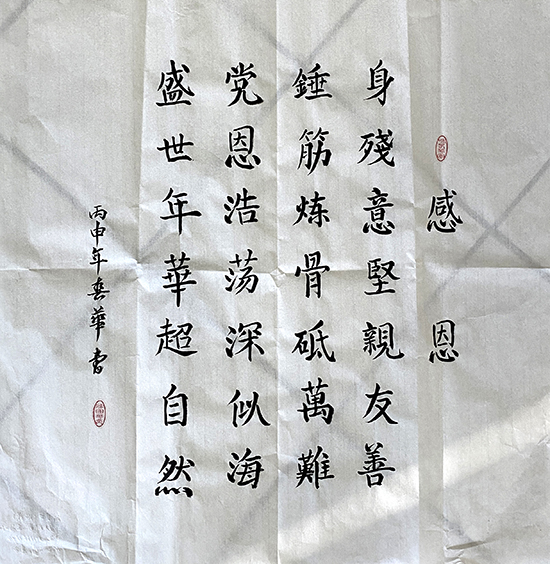 感恩
身殘意堅親友善
錘筋炼骨砥萬難
党恩浩荡深似海
盛世年華超自然
丙申年春華書